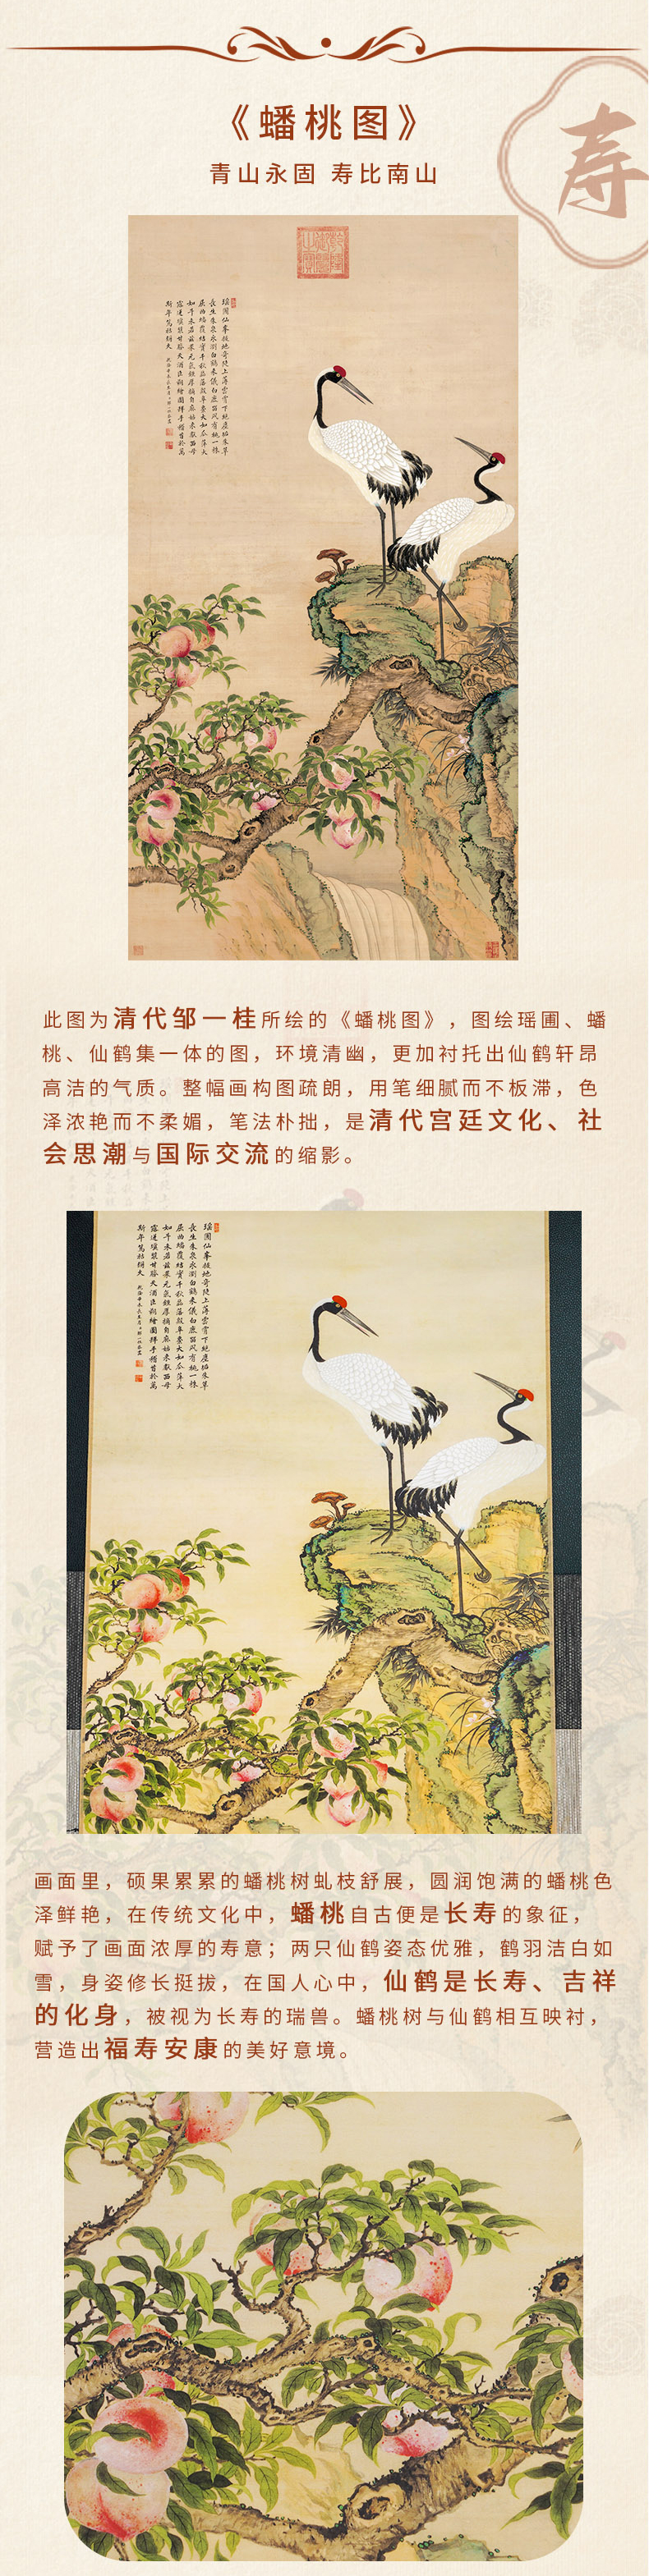 《蟠桃图》
寿
青山永固 寿比南山
此图为清代邹一桂所绘的《蟠桃图》，图绘瑶圃、蟠
桃、仙鹤集一体的图，环境清幽，更加衬托出仙鹤轩昂
高洁的气质。整幅画构图疏朗，用笔细腻而不板滞，色
泽浓艳而不柔媚，笔法朴拙，是清代宫廷文化、社
会思潮与国际交流的缩影。
画面里，硕果累累的蟠桃树虬枝舒展，圆润饱满的蟠桃色
泽鲜艳，在传统文化中，蟠桃自古便是长寿的象征，
赋予了画面浓厚的寿意；两只仙鹤姿态优雅，鹤羽洁白如
雪，身姿修长挺拔，在国人心中，仙鹤是长寿、吉祥
的化身，被视为长寿的瑞兽。蟠桃树与仙鹤相互映衬，
营造出福寿安康的美好意境。